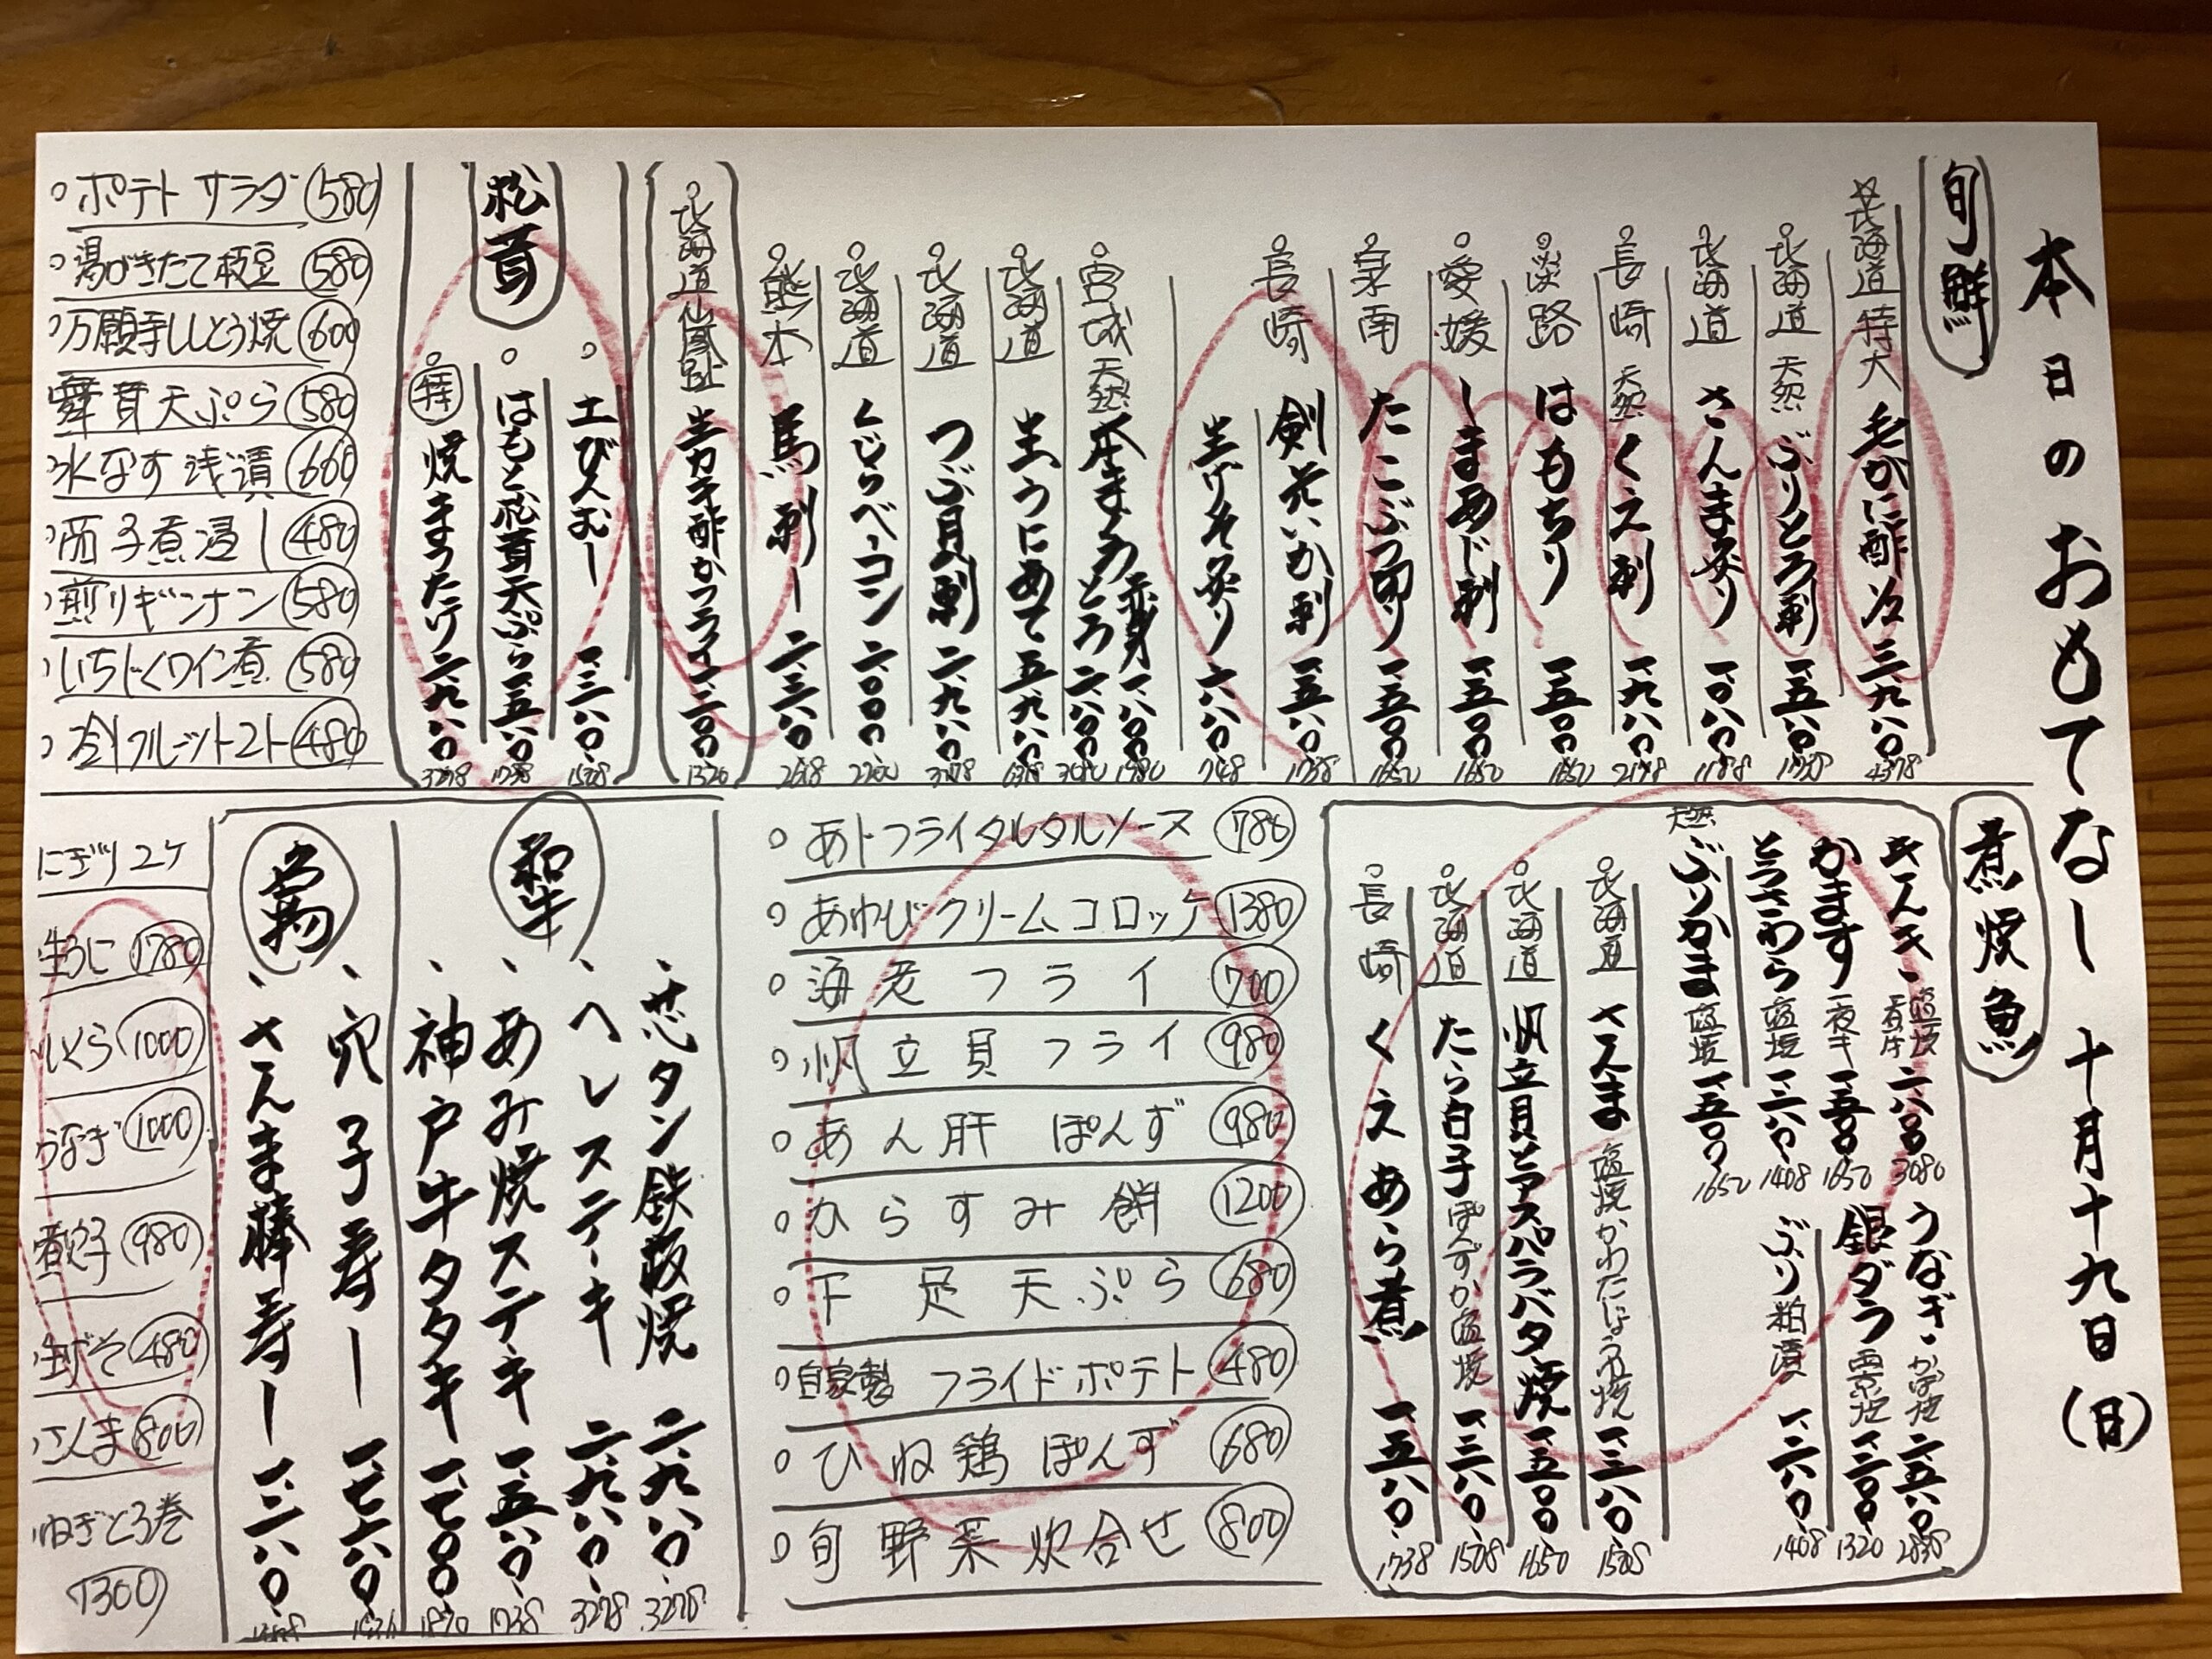 本日のおもてなし 十月十九日(日)
旬鮮
☆北海道特大 毛がに酢 三、九八〇 4378
北海道 天然 ぶりとろ刺 一、五八〇 1738
北海道 さんま炙り 一、〇八〇 1188
長崎 天然 くえ刺 一、九八〇 2178
淡路 はもちり 一、五〇〇 1650
愛媛 しまあじ刺 一、五〇〇 1650
泉南 たこぶつ切り 一、五〇〇 1650
長崎 剣先いか刺 一、五八〇 1738
生げそ炙り 六八〇 748
宮城 天然 本まぐろ 赤身 一、八〇〇 1980
とろ 二、八〇〇 3080
北海道 生うにあて 五、九八〇 6578
北海道 つぶ貝刺 二、九八〇 3278
北海道 くじらベーコン 二、〇〇〇 2200
熊本 馬刺し 二、三八〇 2618
北海道仙鳳趾 生カキ酢かフライ 一、二〇〇 1320
松茸
土びんむし 一、三八〇 1508
はもと松茸天ぷら 一、五八〇 1738
特 焼まつたけ 二、九八〇 3278
ポテトサラダ 580
湯がきたて枝豆 580
万願寺ししとう焼 600
舞茸天ぷら 580
水なす浅漬 600
茄子煮浸し 480
煎りギンナン 580
いちじくワイン煮 580
冷しフルーツトマト 480
煮焼魚
きんき 塩焼 煮付 二、八〇〇 3080
かます 一夜干 一、五〇〇 1650
とろさわら 塩焼 一、二八〇 1408
天然 ぶりかま 塩焼 一、五〇〇 1650
うなぎ かば焼 二、五八〇 2838
銀ダラ 西京焼 一、二〇〇 1320
ぶり 粕漬 一、二八〇 1408
北海道 さんま 塩焼かわたほうろく焼 一、三八〇 1508
北海道 帆立貝とアスパラバタ焼 一、五〇〇 1650
北海道 たら白子 ぽんずか塩焼 一、三八〇 1508
長崎 くえあら煮 一、五八〇 1738
あじフライタルタルソース 780
あわびクリームコロッケ 1380
海老フライ 700
帆立貝フライ 980
あん肝ぽんず 980
からすみ餅 1200
下足天ぷら 680
自家製フライドポテト 480
ひね鶏ぽんず 680
旬野菜炊合せ 800
和牛
芯タン鉄板焼 二、九八〇 3278
ヘレステーキ 二、九八〇 3278
あみ焼ステーキ 一、五八〇 1738
神戸牛タタキ 一、七〇〇 1870
名物
穴子寿し 一、七六〇
さんま棒寿し 一、二八〇
にぎり2ケ
生うに 1780
いくら 1000
うなぎ 1000
煮穴子 980
生げそ 480
さんま 800
ねぎとろ巻
1300